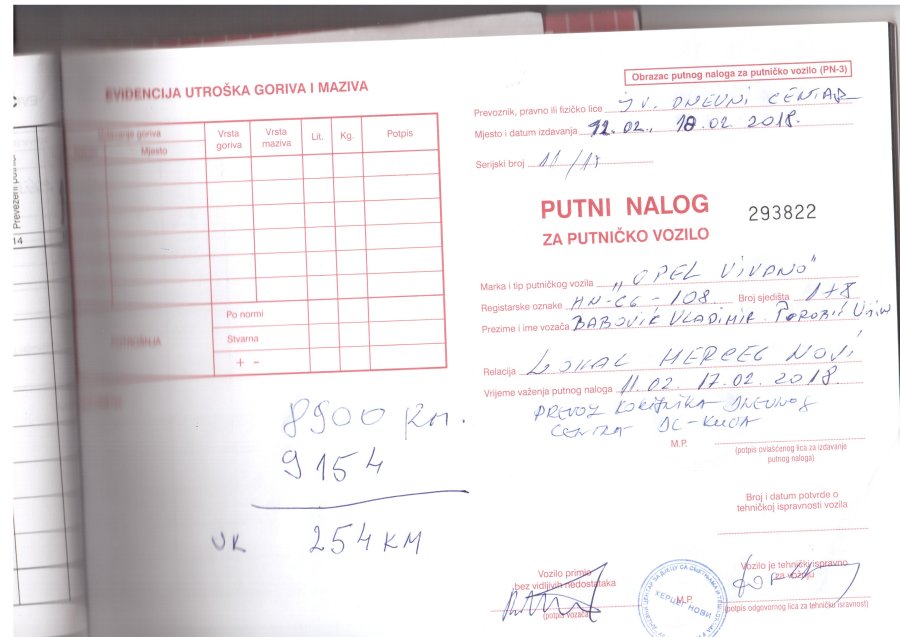 EVIDENCIJA UTROŠKA GORIVA I MAZIVA
goriva
Mjesto
Vrsta goriva
Vrsta maziva
Lit.
Kg.
Potpis
Po normi
POTROŠNJA
Stvarna
+ -
8900 km.
9154
UK 254 KM
14
Obrazac putnog naloga za putničko vozilo (PN-3)
Prevoznik, pravno ili fizičko lice J.U. DNEVNI CENTAR
Mjesto i datum izdavanja 12.02., 18.02. 2018.
Serijski broj 11/18
PUTNI NALOG
293822
ZA PUTNIČKO VOZILO
Marka i tip putničkog vozila „OPEL VIVARO"
Registarske oznake HN-CG-108 Broj sjedišta 1+8
Prezime i ime vozača BABOVIĆ VLADIMIR
Relacija LOKAL HERCEG NOVI
Vrijeme važenja putnog naloga 11.02. 17.02. 2018.
PREVOZ KORISNIKA DNEVNOG
CENTRA DC-KUĆA
M.P.
(potpis ovlašćenog lica za izdavanje
putnog naloga)
Broj i datum potvrde o
tehničkoj ispravnosti vozila
Vozilo primio
bez vidljivih nedostataka
(potpis vozača)
M.P.
ХЕРЦЕГ НОВИ
Vozilo je tehnički ispravno
za vožnju
(potpis odgovornog lica za tehničku isravnost)